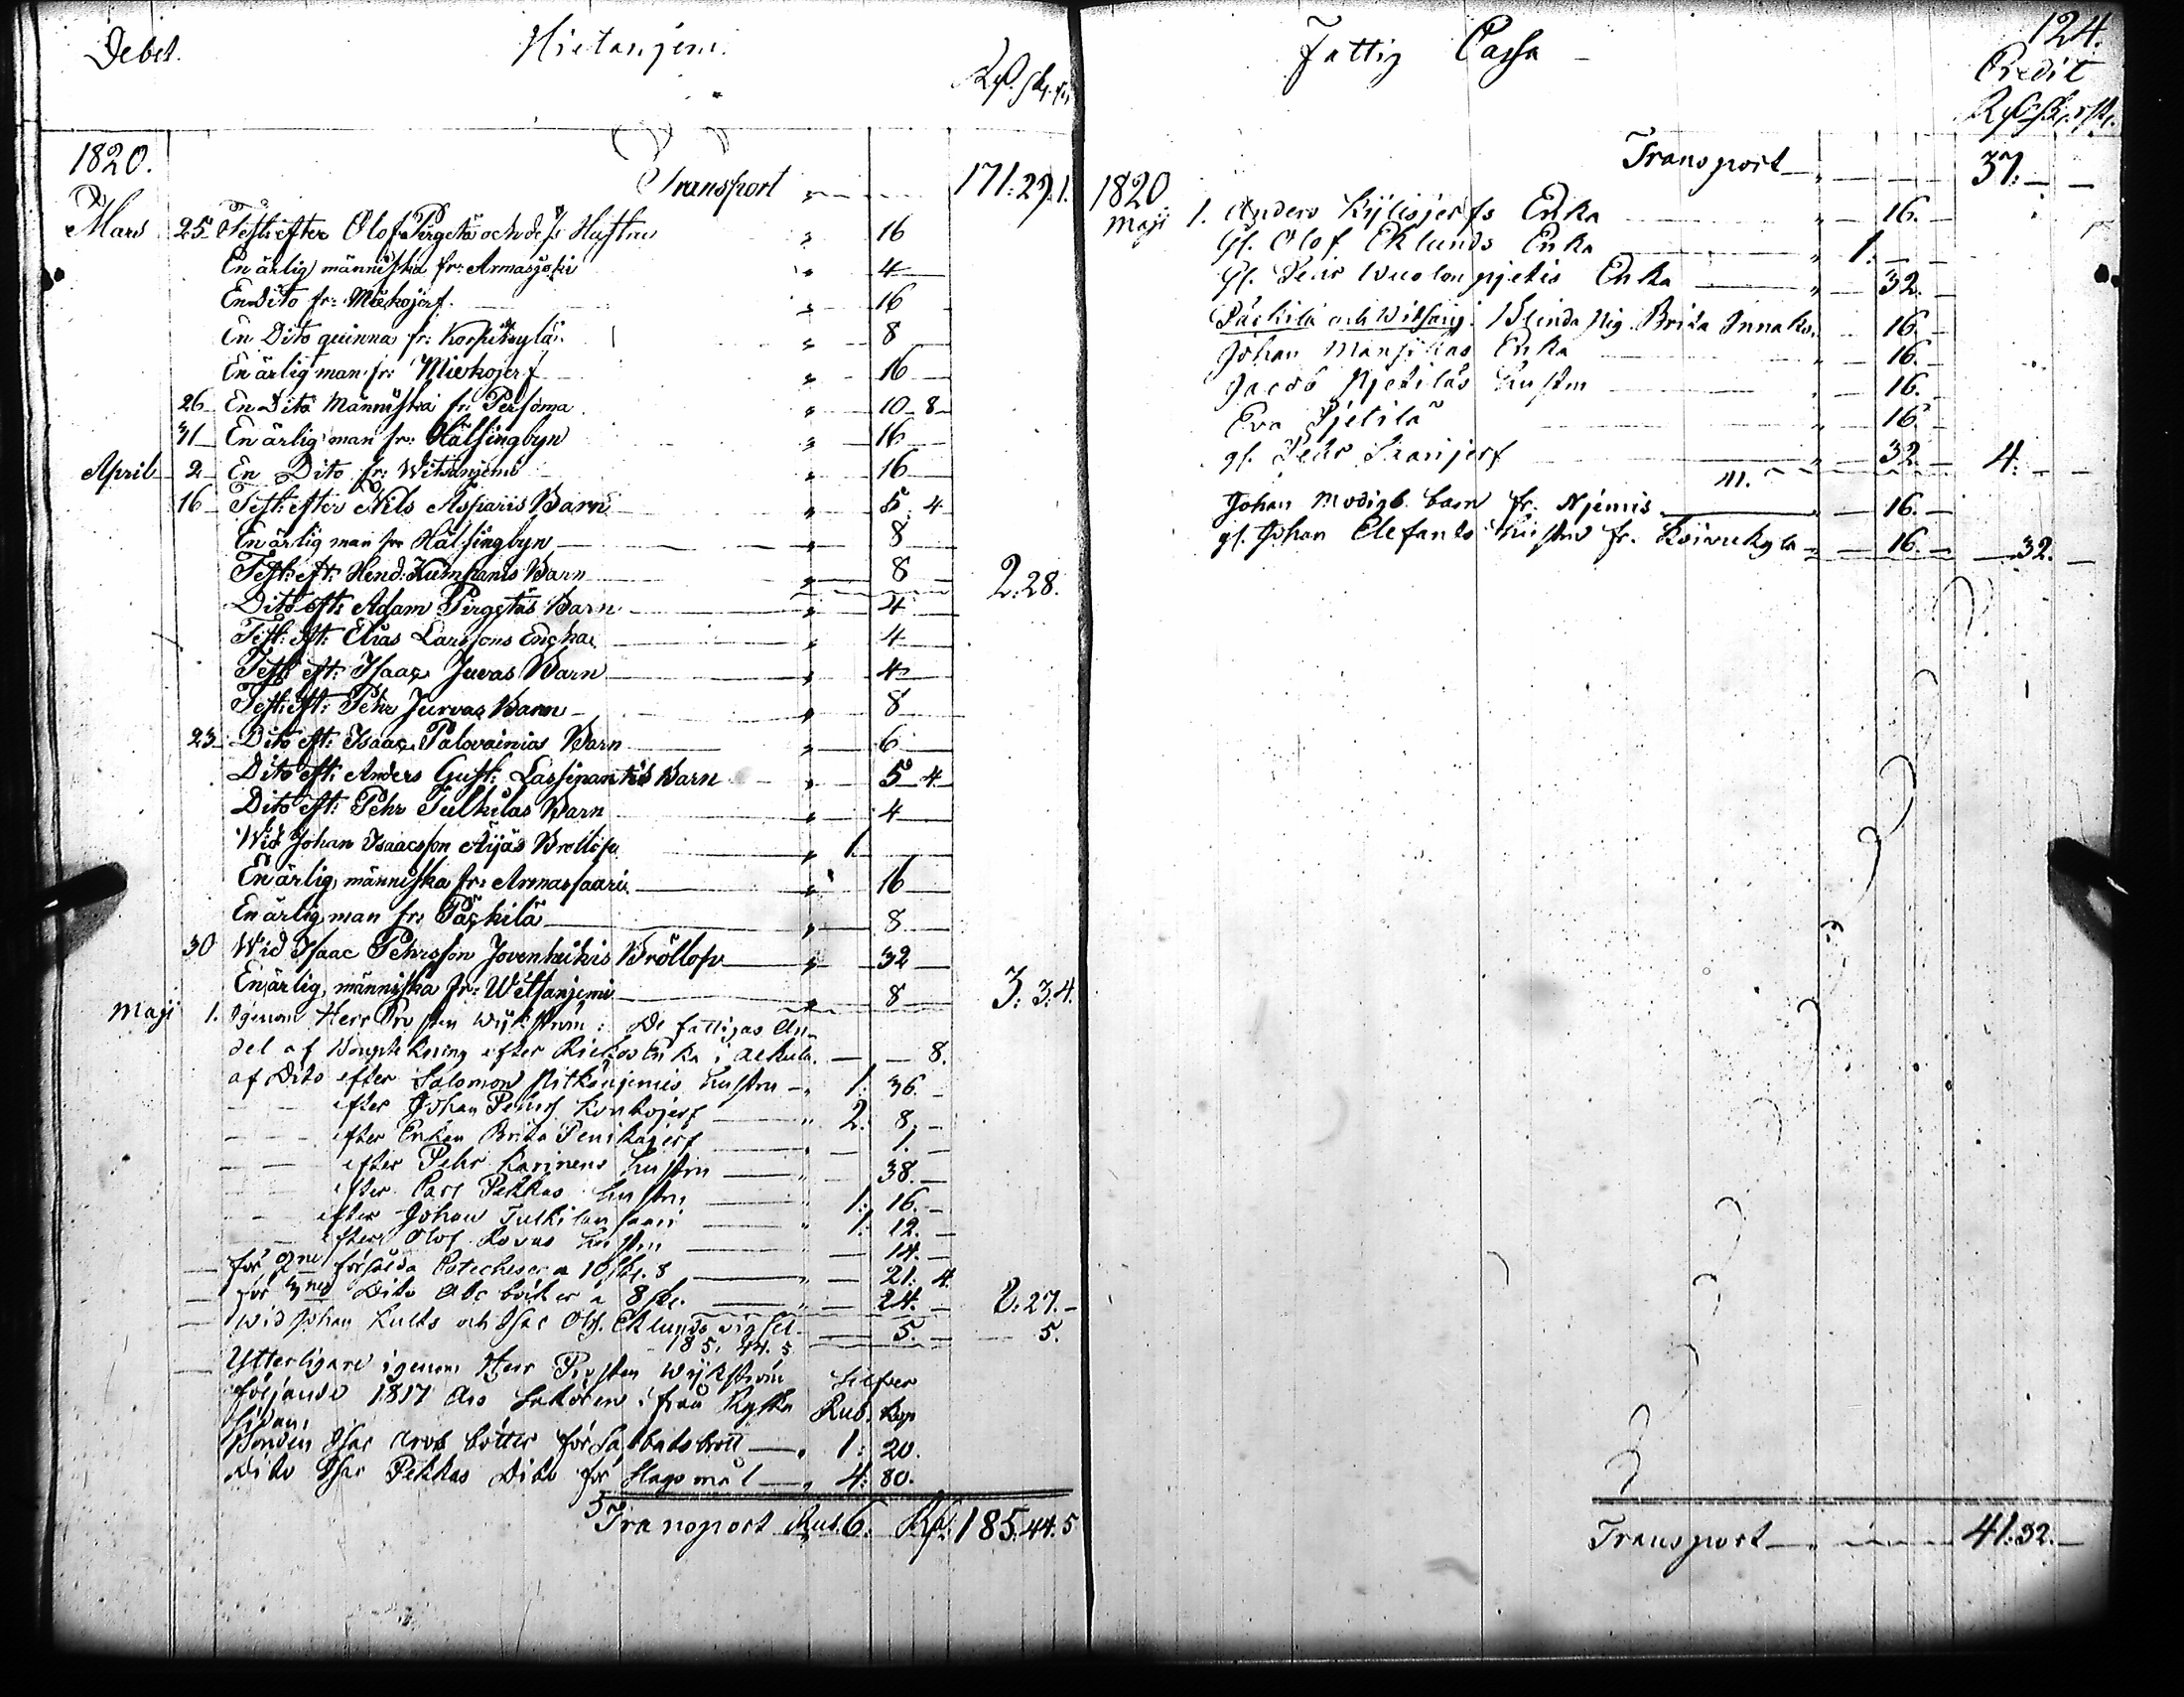 Debet. Hietaniemi.
Rd. sk. rst.
1820. Transport 171: 27. 1.
Mars 25 Test: efter Olof Pirgetä och dess Hustru 16
En ärlig människa fr: Armasjoki 4
En Dito fr: Miekojerf. 16
En Dito quinna fr: Korpikylä. 8
En ärlig man fr: Miekojerf 16
26 En Dito Människa fr: Persoma 10 8
31 En ärlig man fr: Hälsingbyn 16
April 2 En Dito fr: Witsanjemi 16
16 Test: efter Nils Asparis Barn 5. 4
En ärlig man fr: Hälsingbyn 8
Test: eft: Hend: Kumpanis Barn 8 2. 28.
Dito eft: Adam Pirgetäs Barn 4
Test: eft: Elias Larssons Enckia 4
Test: eft: Isaac Juvas Barn 4
Test: eft: Pehr Jurvas Barn 8
23 Dito eft: Isaac Palovainias Barn 6
Dito eft: Anders Gust: Lassinanttis Barn 5 4
Dito eft: Pehr Tulkilas Barn 4
Wid Johan Isaacsson Äijäs Bröllop 1.
En ärlig människa fr: Armassaari 16
En ärlig man fr: Päckilä 8
30 Wid Isaac Pehrsson Jovenheikis Bröllop 32
En ärlig människa fr: Witsanjemi 8 3. 3. 4.
Maji 1. Igenom Herr Prosten Wijkström: De fattigas An-
del af Boupteckning efter Rickos Enka i 8.
af Dito efter Salomon Pitkänjemis hustru 1: 36.
efter Johan Pehrs. Kuckojerf 2. 8.
efter Enkan Brita Penikajerf 1.
efter Pehr Karinens hustru 38.
efter Carl Pekkas hustru 1: 16.
efter Johan Tulkilan saari 1: 12.
efter Olof Rovas hustru 14.
för 2ne försålda Catecheser a 10 sk. 8 21: 4.
för 3ne Dito Abc böcker a 8 sk. 24. 8. 27.
wid Johan Kults och Isac Ols. Eklunds vigsel 5. 5.
185. 44. 5
Ytterligare igenom Herr Prosten Wijkström Silfver
följande 1817 Års Sakören ifrån Ryska Rub. Kop
sidan:
Bonden Isac Arvs böter för Sabbatsbrott 1: 20.
Dito Isac Pekkas Dito för Slagsmål 4: 80.
Transport Rub. 6. Rd. 185. 44. 5
124.
Fattig Cassa Credit
Rd. sk. rst.
Transport 37.
1820
Maji 1. Anders Kylisjerfs Enka 16.
gl. Olof Eklunds Enka 1.
gl. Pehr Wuolonpjetis Enka 32.
Päckilä och Witsanj. Blinda pig. Brita Innaks. 16.
Johan Mansikas Enka 16.
Jacob Pjetiläs hustru 16.
Eva Pjetilä 16.
gl. Pehr Tranijerf 32. 4.
Johan Modigs barn fr. Njemis 16.
gl. Johan Elefants hustru fr. Koivukylä 16. 32.
Transport 41. 32.